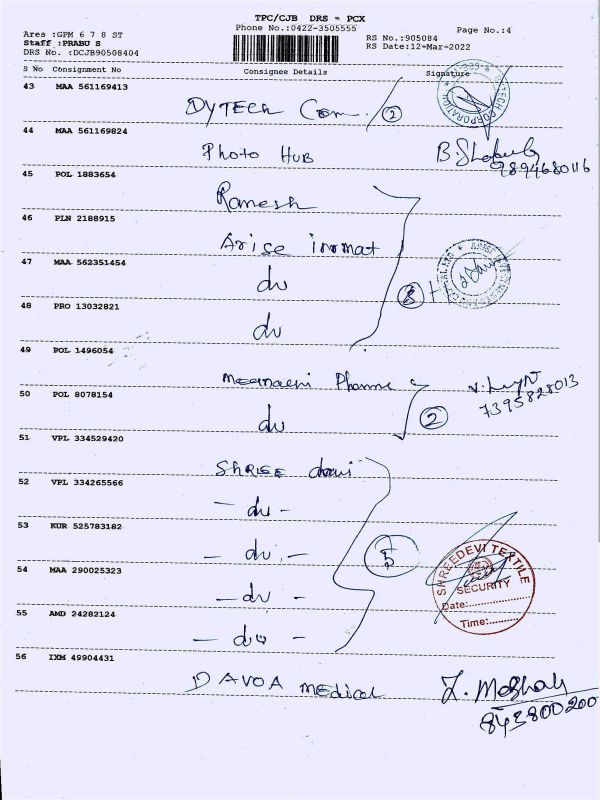 TPC/CJB DRS = PCX
Area :GPM 6 7 8 ST
Phone No.:0422-3505555
Page No.:4
Staff :PRABU S
RS No.:905084
DRS No. :DCJB90508404
RS Date:12-Mar-2022
S No Consignment No Consignee Details Signature
43 MAA 561169413
DYTECH Com. / 2
44 MAA 561169824
Photo HUB
9894680116
45 POL 1883654
Ramesh
46 PLN 2188915
Arise
47 MAA 562351454
du
48 PRO 13032821
du
49 POL 1496054
50 POL 8078154
7395828013
du 2
51 VPL 334529420
52 VPL 334265566
- du -
53 KUR 525783182
- du - 5
54 MAA 290025323
- du -
SHREEDEVI TEXTILE
SECURITY
Date:
Time:
55 AMD 24282124
- du -
56 IXM 49904431
Medical
843800200